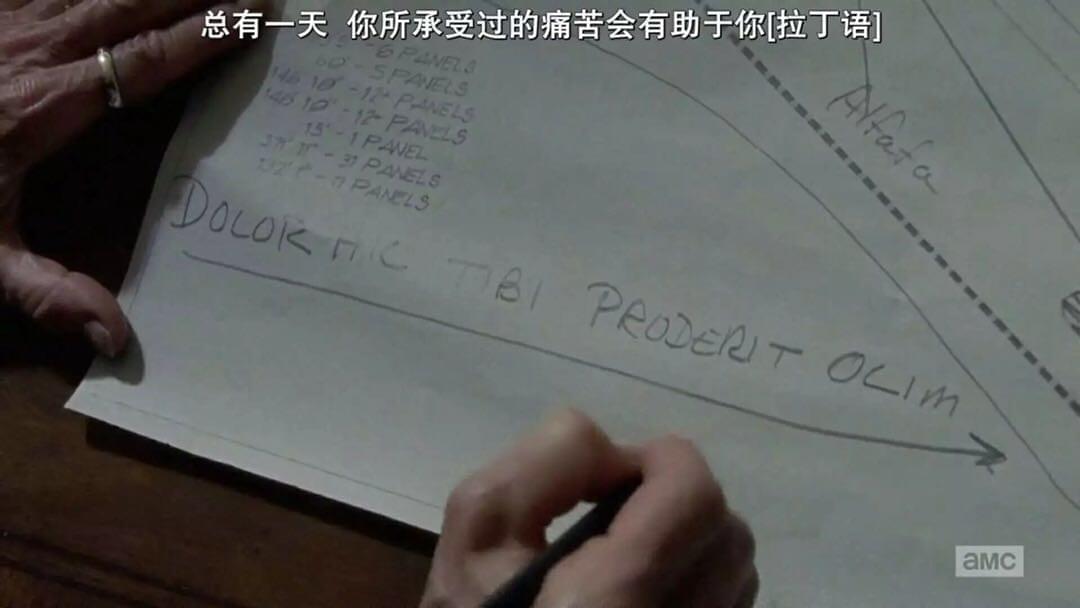 总有一天 你所承受过的痛苦会有助于你[拉丁语]
- 6 PANELS
60' - 5 PANELS
146' 10" - 12 PANELS
146' 10" - 12 PANELS
13' - 1 PANEL
- 31 PANELS
PANELS
Alfafa
DOLOR HIC TIBI PRODERIT OLIM
amc